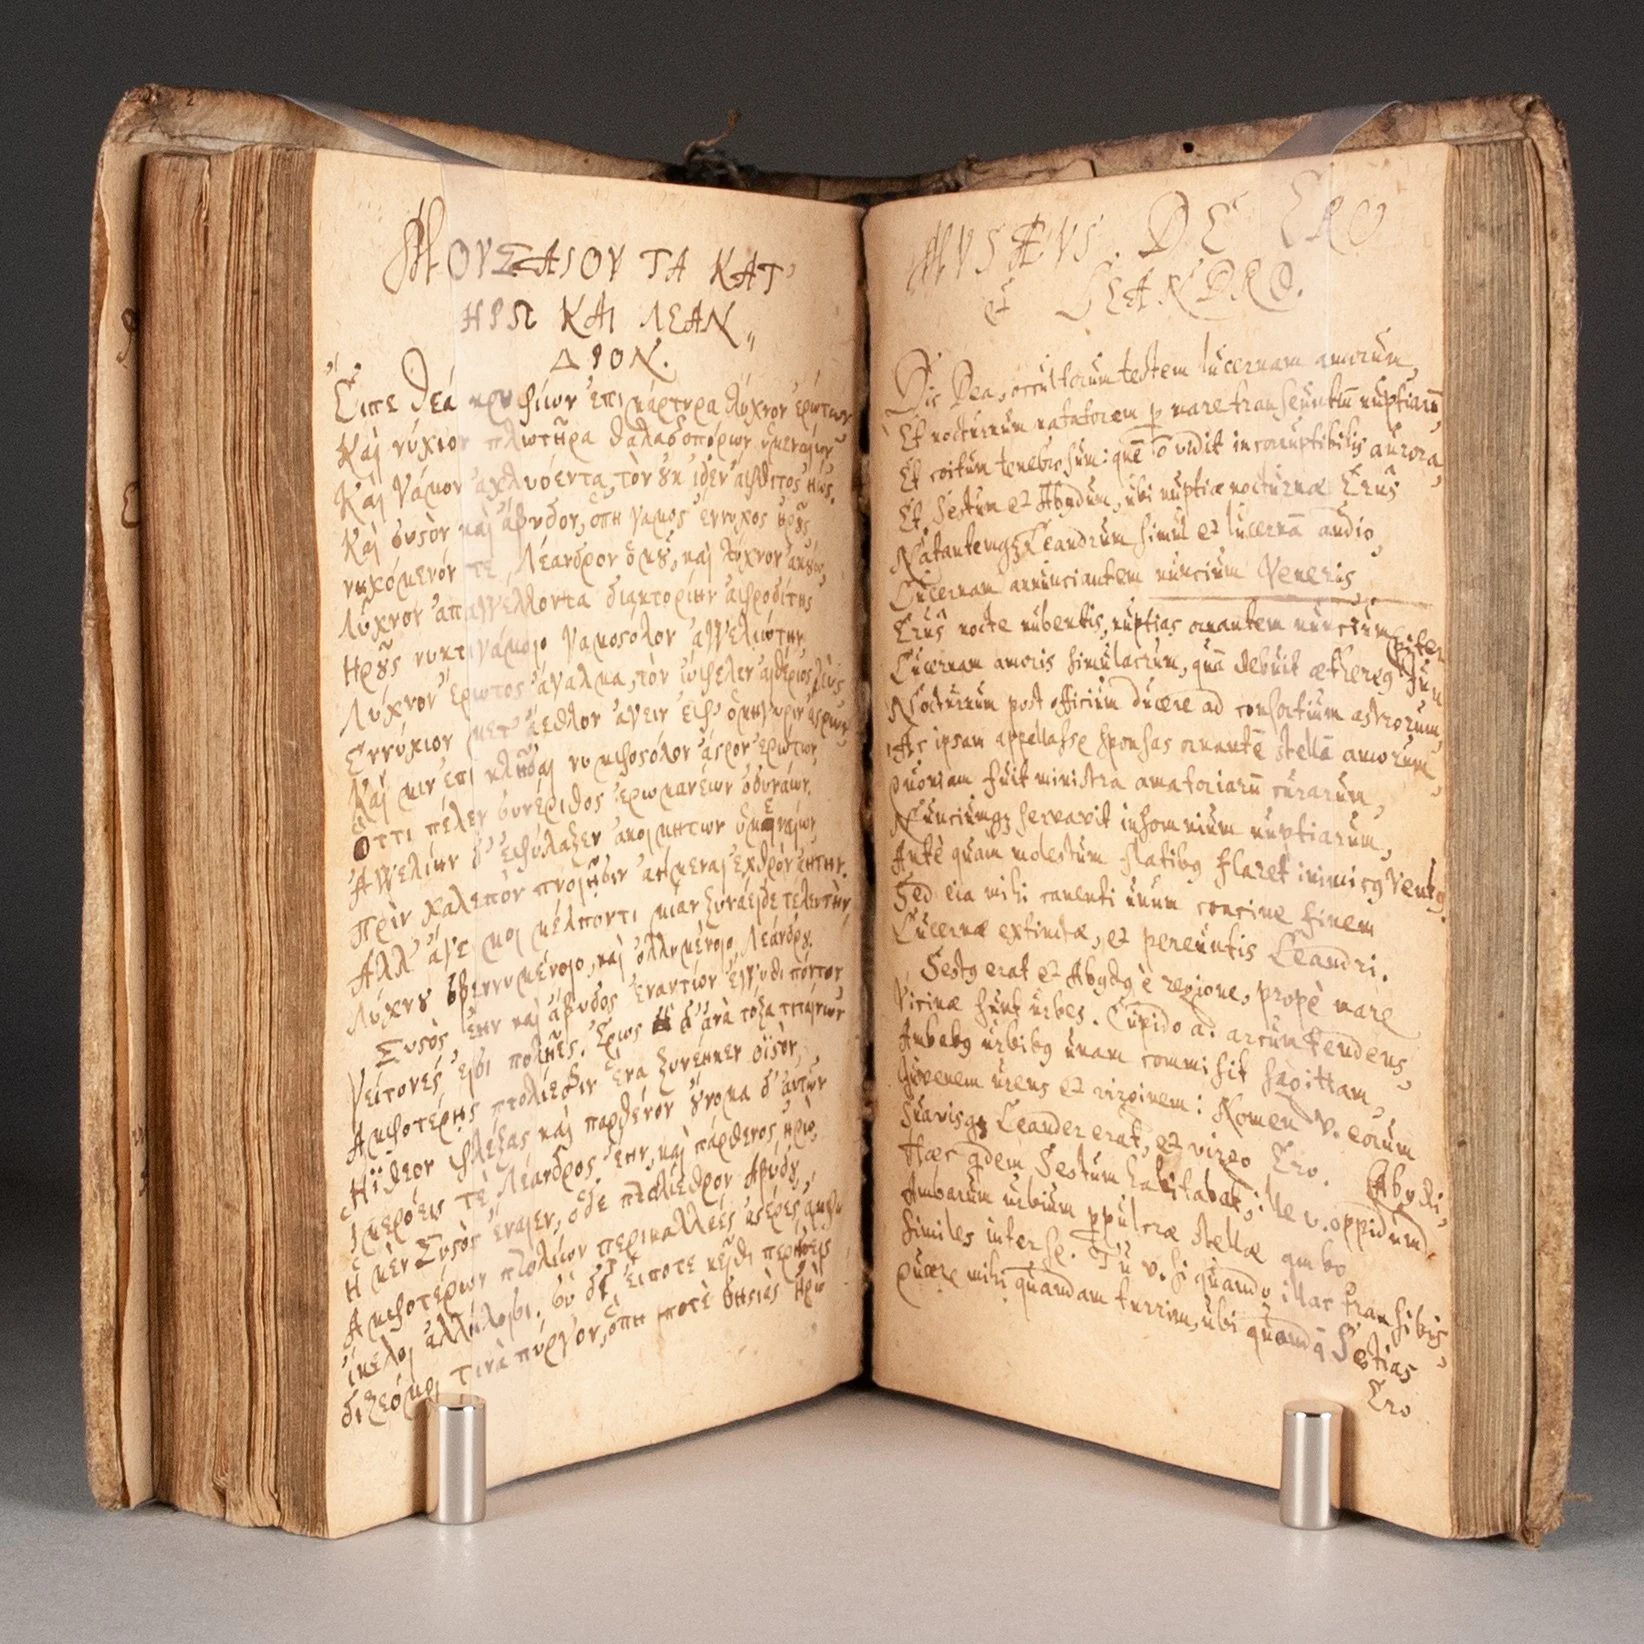 ΜΟΥΣΑΙΟΥ ΤΑ ΚΑΤ'
ΗΡΩ ΚΑΙ ΛΕΑΝ„
ΔΡΟΝ.
Εἰπὲ θεά κρυφίων ἐπιμάρτυρα λύχνον ἐρώτων
Καὶ νύχιον πλωτῆρα θαλασσοπόρων ὑμεναίων
Καὶ γάμον ἀχλυόεντα, τὸν ȣκ ἴδεν ἄφθιτος ἠώς.
Καὶ σηστὸν καὶ ἄβυδον, ὅπη γάμος ἔννυχος ἡρȣς
νηχόμενόν τε, Λέανδρον ὁμȣ, καὶ λύχνον ἀκȣω,
Λύχνον ἀπαγγέλλοντα διακτορίην ἀφροδίτης
Ηρȣς νυκτιγάμοιο γαμοστόλον ἀγγελιώτην
Λύχνον ἔρωτος ἄγαλμα, τὸν ὤφελεν αἰθέριος ζεὺς
Εννύχιον μετ' ἄεθλον ἄγειν ἐς ὁμήγυριν ἄστρων
Καί μιν ἐπικλῆσαι νυμφοστόλον ἄστρον ἐρώτων
Οττι πέλεν συνέριθος ἐρωμανέων ὀδυνάων,
Αγγελίην δ' ἐφύλαξεν ἀκοιμήτων ὑμεναίων
Πρὶν χαλεπὸν πνοιῇσιν ἀήμεναι ἐχθρὸν ἀήτην.
Αλλ' ἄγε μοι μέλποντι μίαν ξυνάειδε τελευτὴν
Λύχνȣ σβεννυμένοιο, καὶ ὀλλυμένοιο Λεάνδρȣ.
Σηστὸς ἔην καὶ ἄβυδος ἐναντίον ἐγγύθι πόντου
Γείτονές εἰσι πολῆες. Ἔρως δ' ἀνὰ τόξα τιταίνων
Αμφοτέρῃς πτολίεσσιν ἕνα ξυνέηκεν ὀϊστὸν,
Ηΐθεον φλέξας καὶ παρθένον ȣνομα δ' αὐτῶν
Ιμερόεις τὲ Λέανδρος ἔην, καὶ πάρθενος ἡρώ.
Η μὲν Σηστὸς ἔναιεν, ὁ δὲ πτολίεθρον Αβύδȣ,
Αμφοτέρων πτολίων περικαλλέες ἀστέρες ἄμφω
ἴκελοι ἀλλήλοισι. σὺ δ' εἴποτε κεῖθι περήσεις
δίζεό μοι τινὰ πύργον, ὅπη ποτὲ Σηστιὰς Ηρὼ
MVSÆVS. DE ERO
et LEANDRO.
Dic Dea, occultorum testem lucernam amorum,
Et nocturnum natatorem p mare transeuntiū nuptiarū,
Et coitum tenebrosum: quē nō vidit incorruptibilis aurora,
Et Sestum et Abydum, ubi nuptiæ nocturnæ Erūs
Natantemqȝ Leandrum simul et lucernā audio,
Lucernam annunciantem nuncium Veneris,
Erūs nocte nubentis, nuptias ornantem nuncium
Lucernam amoris simulacrum, quā debuit æthereg Jupiter
Nocturnum post officium ducere ad consortium astrorum,
Ac ipsam appellasse sponsas ornantē stellā amorum
Quoniam fuit ministra amatoriarū curarum,
Nunciumqȝ servavit insomnium nuptiarum,
Antè quam molestum flatibg flaret inimicg ventg.
Sed eia mihi canenti unum concine finem
Lucernæ extinctæ, et pereuntis Leandri.
Sestg erat et Abydg è regione, propè mare
Vicinæ sunt urbes. Cupido a. arcum tendens,
Ambabg urbibg unam commisit sagittam,
Juvenem urens et virginem: Nomen v. eorum
Suavisqȝ Leander erat, et virgo Ero.
Hæc qdem Sestum habitabat, ille v. oppidum Abydi,
Ambarum urbium ppulcræ stellæ ambo
Similes inter se. Tu v. si quando illac transibis,
Quære mihi quandam turrim, ubi quondā Sestias
Ero